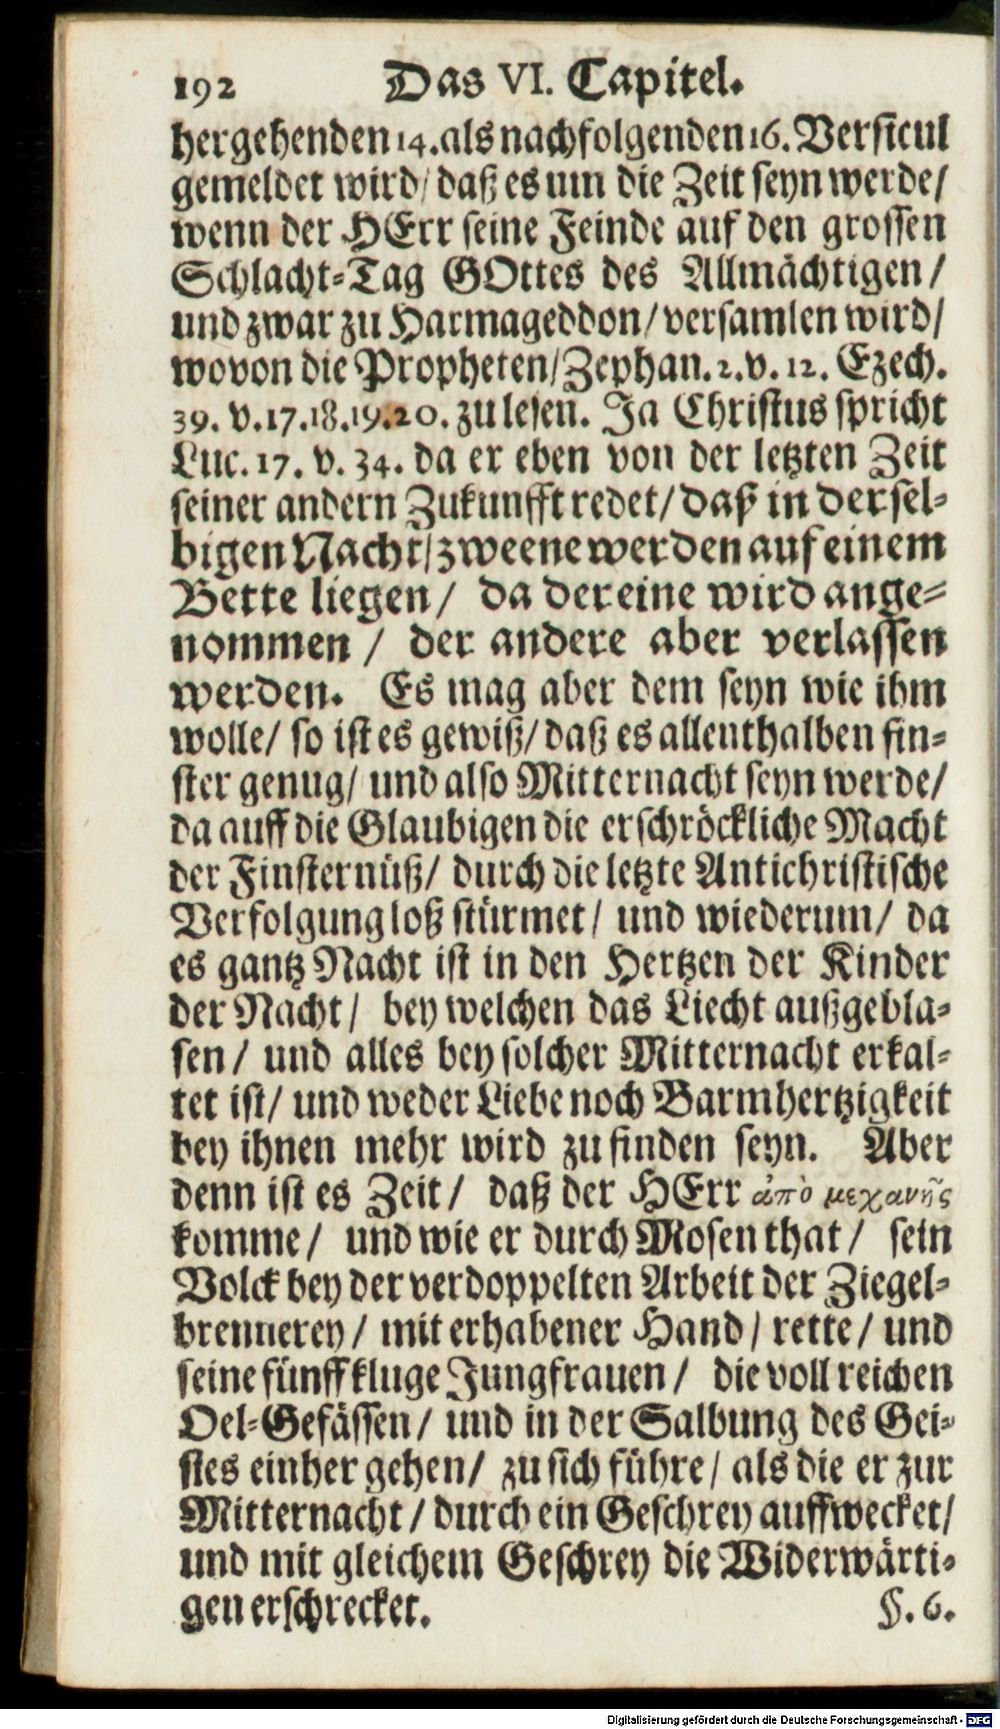 192 Das VI. Capitel.
hergehenden 14. als nachfolgenden 16. Versicul
gemeldet wird / daß es um die Zeit seyn werde /
wenn der HErr seine Feinde auf den grossen
Schlacht-Tag GOttes des Allmächtigen /
und zwar zu Harmageddon / versamlen wird /
wovon die Propheten / Zephan. 2. v. 12. Ezech.
39. v. 17. 18. 19. 20. zu lesen. Ja Christus spricht
Luc. 17. v. 34. da er eben von der letzten Zeit
seiner andern Zukunfft redet / daß in dersel-
bigen Nacht / zweene werden auf einem
Bette liegen / da der eine wird ange-
nommen / der andere aber verlassen
werden. Es mag aber dem seyn wie ihm
wolle / so ist es gewiß / daß es allenthalben fin-
ster genug / und also Mitternacht seyn werde /
da auff die Glaubigen die erschröckliche Macht
der Finsternüß / durch die letzte Antichristische
Verfolgung loß stürmet / und wiederum / da
es gantz Nacht ist in den Hertzen der Kinder
der Nacht / bey welchen das Liecht außgebla-
sen / und alles bey solcher Mitternacht erkal-
tet ist / und weder Liebe noch Barmhertzigkeit
bey ihnen mehr wird zu finden seyn. Aber
denn ist es Zeit / daß der HErr ἀπὸ μεχανῆς
komme / und wie er durch Mosen that / sein
Volck bey der verdoppelten Arbeit der Ziegel-
brennerey / mit erhabener Hand / rette / und
seine fünff kluge Jungfrauen / die voll reichen
Oel-Gefässen / und in der Salbung des Gei-
stes einher gehen / zu sich führe / als die er zur
Mitternacht / durch ein Geschrey auffwecket /
und mit gleichem Geschrey die Widerwärti-
gen erschrecket. §. 6.
Digitalisierung gefördert durch die Deutsche Forschungsgemeinschaft - DFG